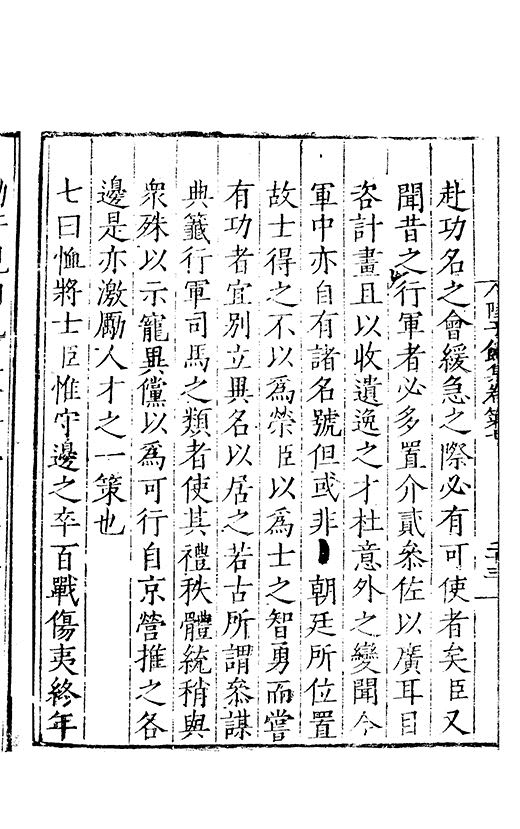 赴功名之會緩急之際必有可使者矣臣又
聞昔之行軍者必多置介貳叅佐以廣耳目
咨計畫且以收遺逸之才杜意外之變聞今
軍中亦自有諸名號但或非朝廷所位置
故士得之不以爲榮臣以爲士之智勇而嘗
有功者宜別立異名以居之若古所謂叅謀
典籤行軍司馬之類者使其禮秩體統稍與
衆殊以示寵異儻以爲可行自京營推之各
邊是亦激勵人才之一策也
七曰恤將士臣惟守邊之卒百戰傷夷終年